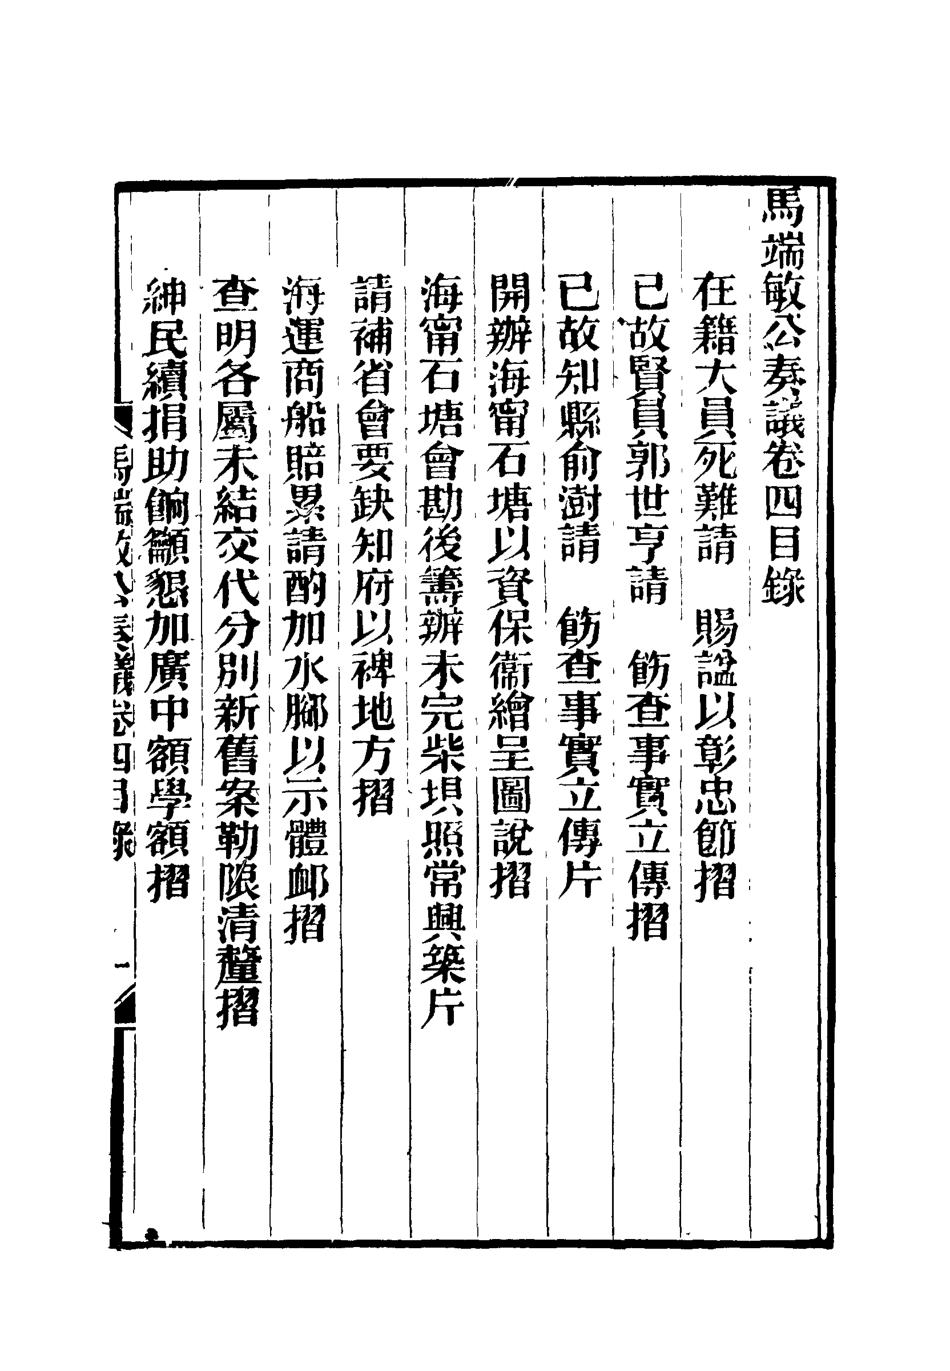 馬端敏公奏議卷四目錄
在籍大員死難請　賜諡以彰忠節摺
已故賢員郭世亨請　飭查事實立傳摺
已故知縣俞澍請　飭查事實立傳片
開辦海甯石塘以資保衞繪呈圖說摺
海甯石塘會勘後籌辦未完柴埧照常興築片
請補省會要缺知府以裨地方摺
海運商船賠累請酌加水腳以示體卹摺
查明各屬未結交代分別新舊案勒限清釐摺
紳民續捐助餉籲懇加廣中額學額摺
馬端敏公奏議卷四目錄　一